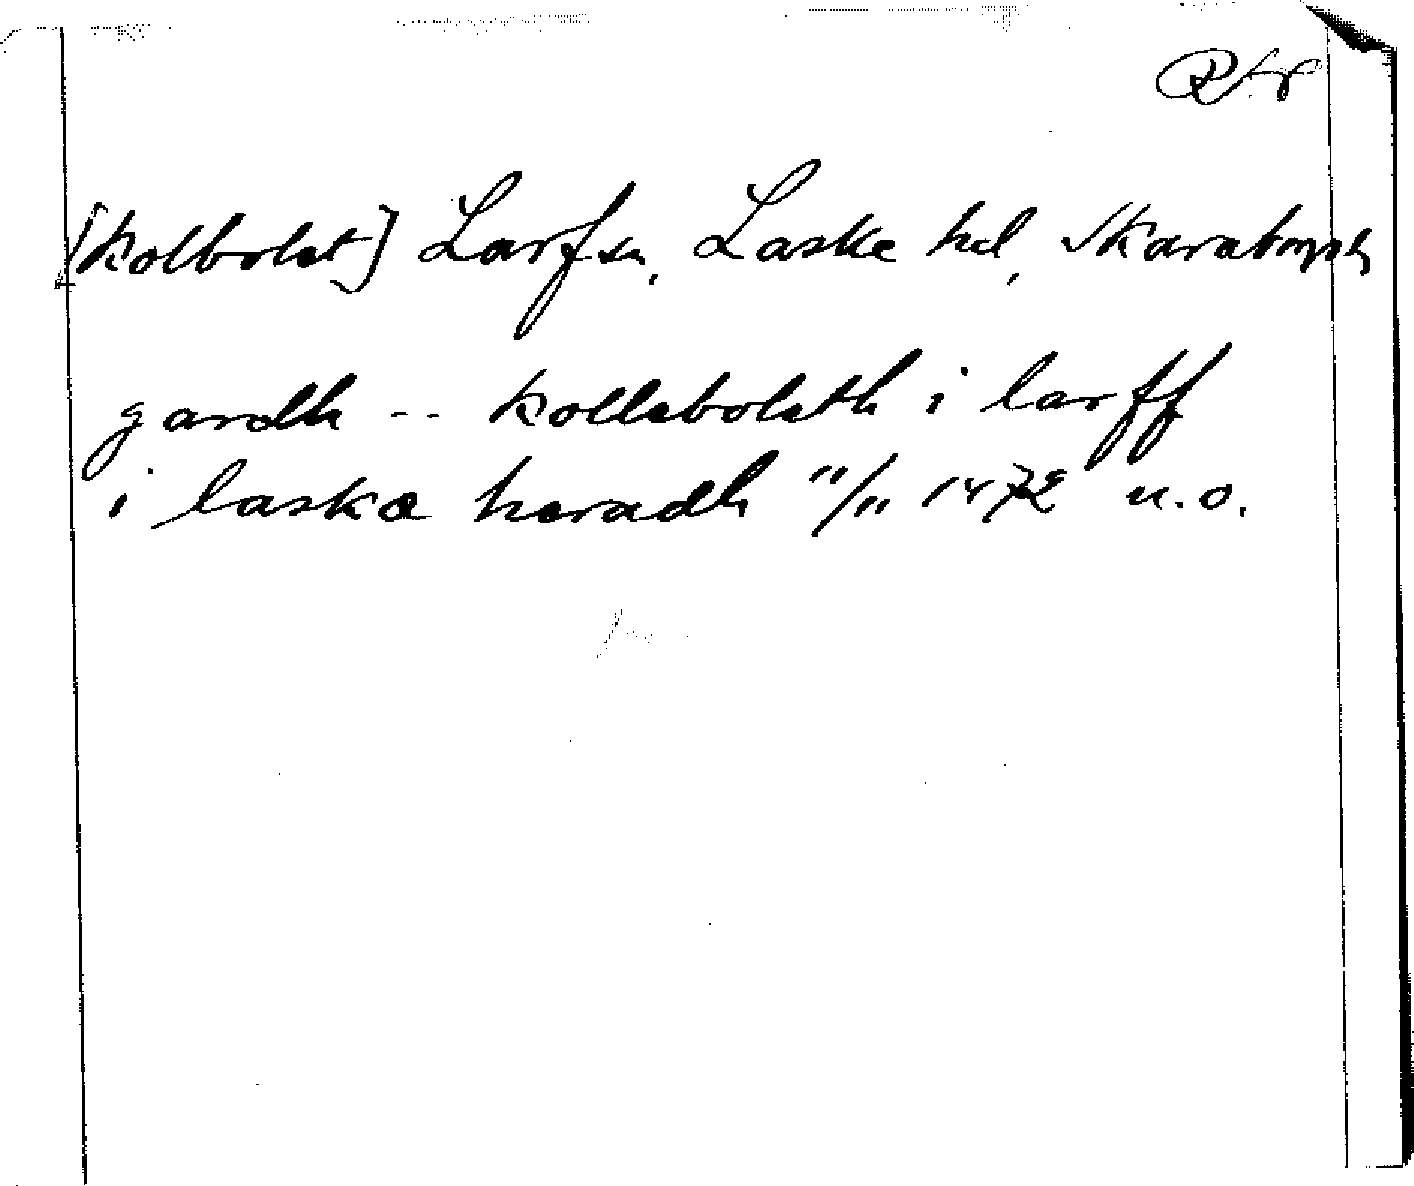 [Kolbolet] Larfsn, Laske hd, Skaraborgs l
gardh -- Kollebolsth i larff
i laska haradh 11/11 1472 u.o.